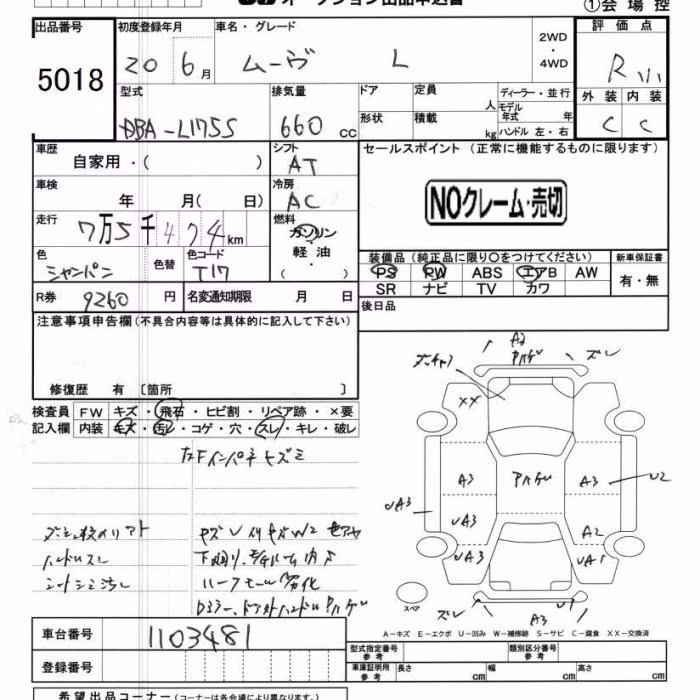 オークション出品申込書 ①会場控
出品番号 初度登録年月 車名・グレード 2WD・4WD 評価点
5018 20 6月 ムーヴ L R
型式 排気量 ドア 定員 人 ディーラー・並行 外装 内装
DBA-L175S 660cc 形状 積載 kg モデル年式 年 ハンドル 左・右 C C
車歴 自家用・( ) シフト AT セールスポイント (正常に機能するものに限ります)
車検 年 月(日) 冷房 AC
NOクレーム・売切
走行 7万5千474km 燃料 ガソリン・軽油・( )
色 シャンパン 色替 色コード T17
装備品 (純正品に限り〇をつけてください) 新車保証書
PS PW ABS エアB AW 有・無
SR ナビ TV カワ
R券 9260円 名変通知期限 月 日 後日品
注意事項申告欄(不具合内容等は具体的に記入して下さい)
修復歴 有 〔箇所 〕
検査員 FW キズ・飛石・ヒビ割・リペア跡・×要
記入欄 内装 キズ・汚レ・コゲ・穴・スレ・キレ・破レ
A2
ズレ
XX
A3 A3 U2
UA3 UA3 A2
UA3 UA1
スペア ズレ A3 U1
ハンドルスレ
シートシミ汚レ
A-キズ E-エクボ U-凹み W-補修跡 S-サビ C-腐食 XX-交換済
車台番号 1103481
登録番号
型式指定番号 参考 類別区分番号 参考
車庫証明用 参考 長さ cm 幅 cm 高さ cm
希望出品コーナー(コーナーは各会場により異なります。)